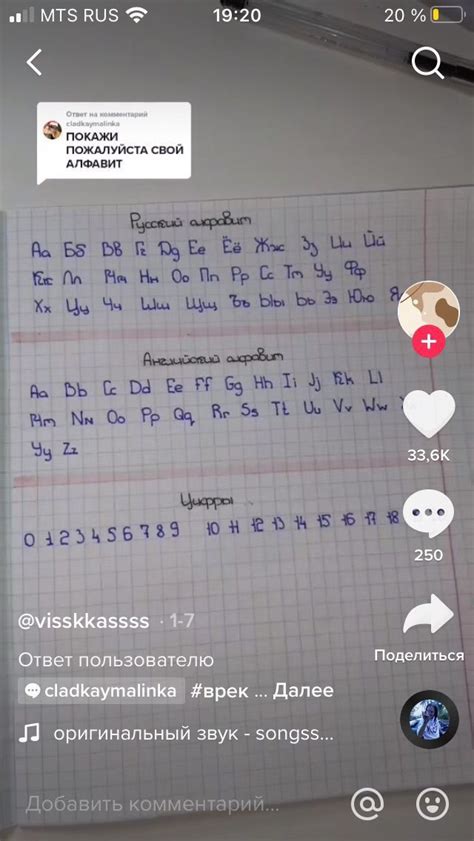 MTS RUS 19:20 20 %
Ответ на комментарий
cladkaymalinka
ПОКАЖИ
ПОЖАЛУЙСТА СВОЙ
АЛФАВИТ
Русский алфавит
Аа Бб Вв Гг Дд Ее Ёё Жж Зз Ии Йй
Кк Лл Мм Нн Оо Пп Рр Сс Тт Уу Фф
Хх Цц Чч Шш Щщ Ъъ Ыы Ьь Ээ Юю Я
Английский алфавит
Aa Bb Cc Dd Ee Ff Gg Hh Ii Jj Kk Ll
Mm Nn Oo Pp Qq Rr Ss Tt Uu Vv Ww
Yy Zz
Цифры
0 1 2 3 4 5 6 7 8 9 10 11 12 13 14 15 16 17 18
33,6K
250
@visskkassss · 1-7
Поделиться
Ответ пользователю
cladkaymalinka #врек ... Далее
оригинальный звук - songss...
Добавить комментарий...